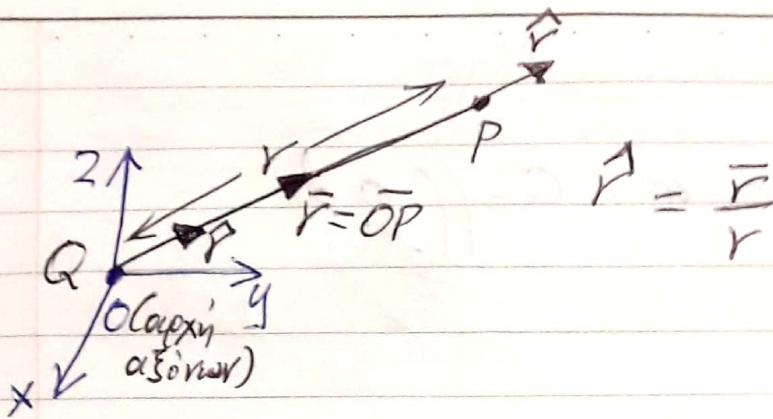 r̂
P
r
z
r̄ = O̅P̅
r̂ = r̄/r
r̂
Q
O(αρχή
αξόνων)
y
x